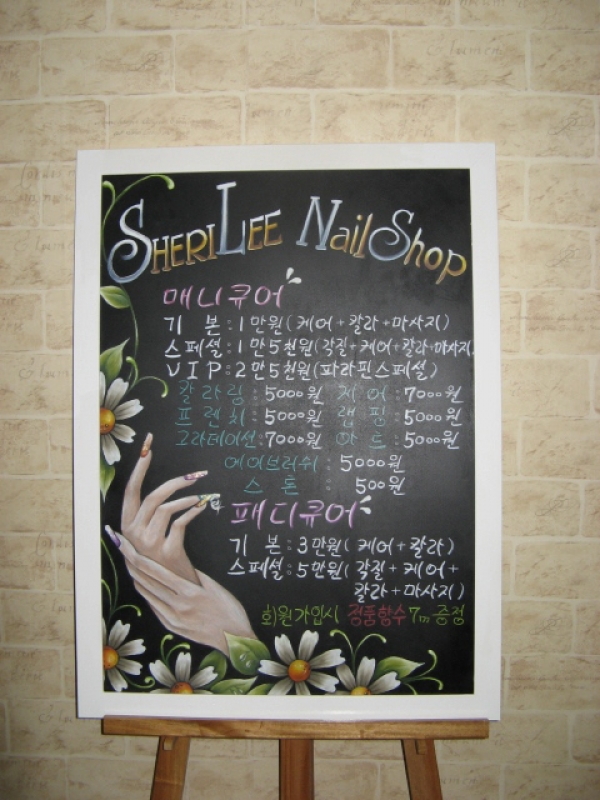 SHERILEE NailShop
매니큐어
기 본 : 1만원(케어+칼라+마사지)
스페셜 : 1만5천원(각질+케어+칼라+마사지)
VIP : 2만5천원(파라핀스페셜)
칼라링 : 5000원 케어 : 7000원
프렌치 : 5000원 랩핑 : 5000원
그라데이션 : 7000원 아트 : 5000원
에어브러쉬 : 5000원
스톤 : 500원
패디큐어
기 본 : 3만원(케어+칼라)
스페셜 : 5만원(각질+케어+
칼라+마사지)
회원가입시 정품향수 7ml증정